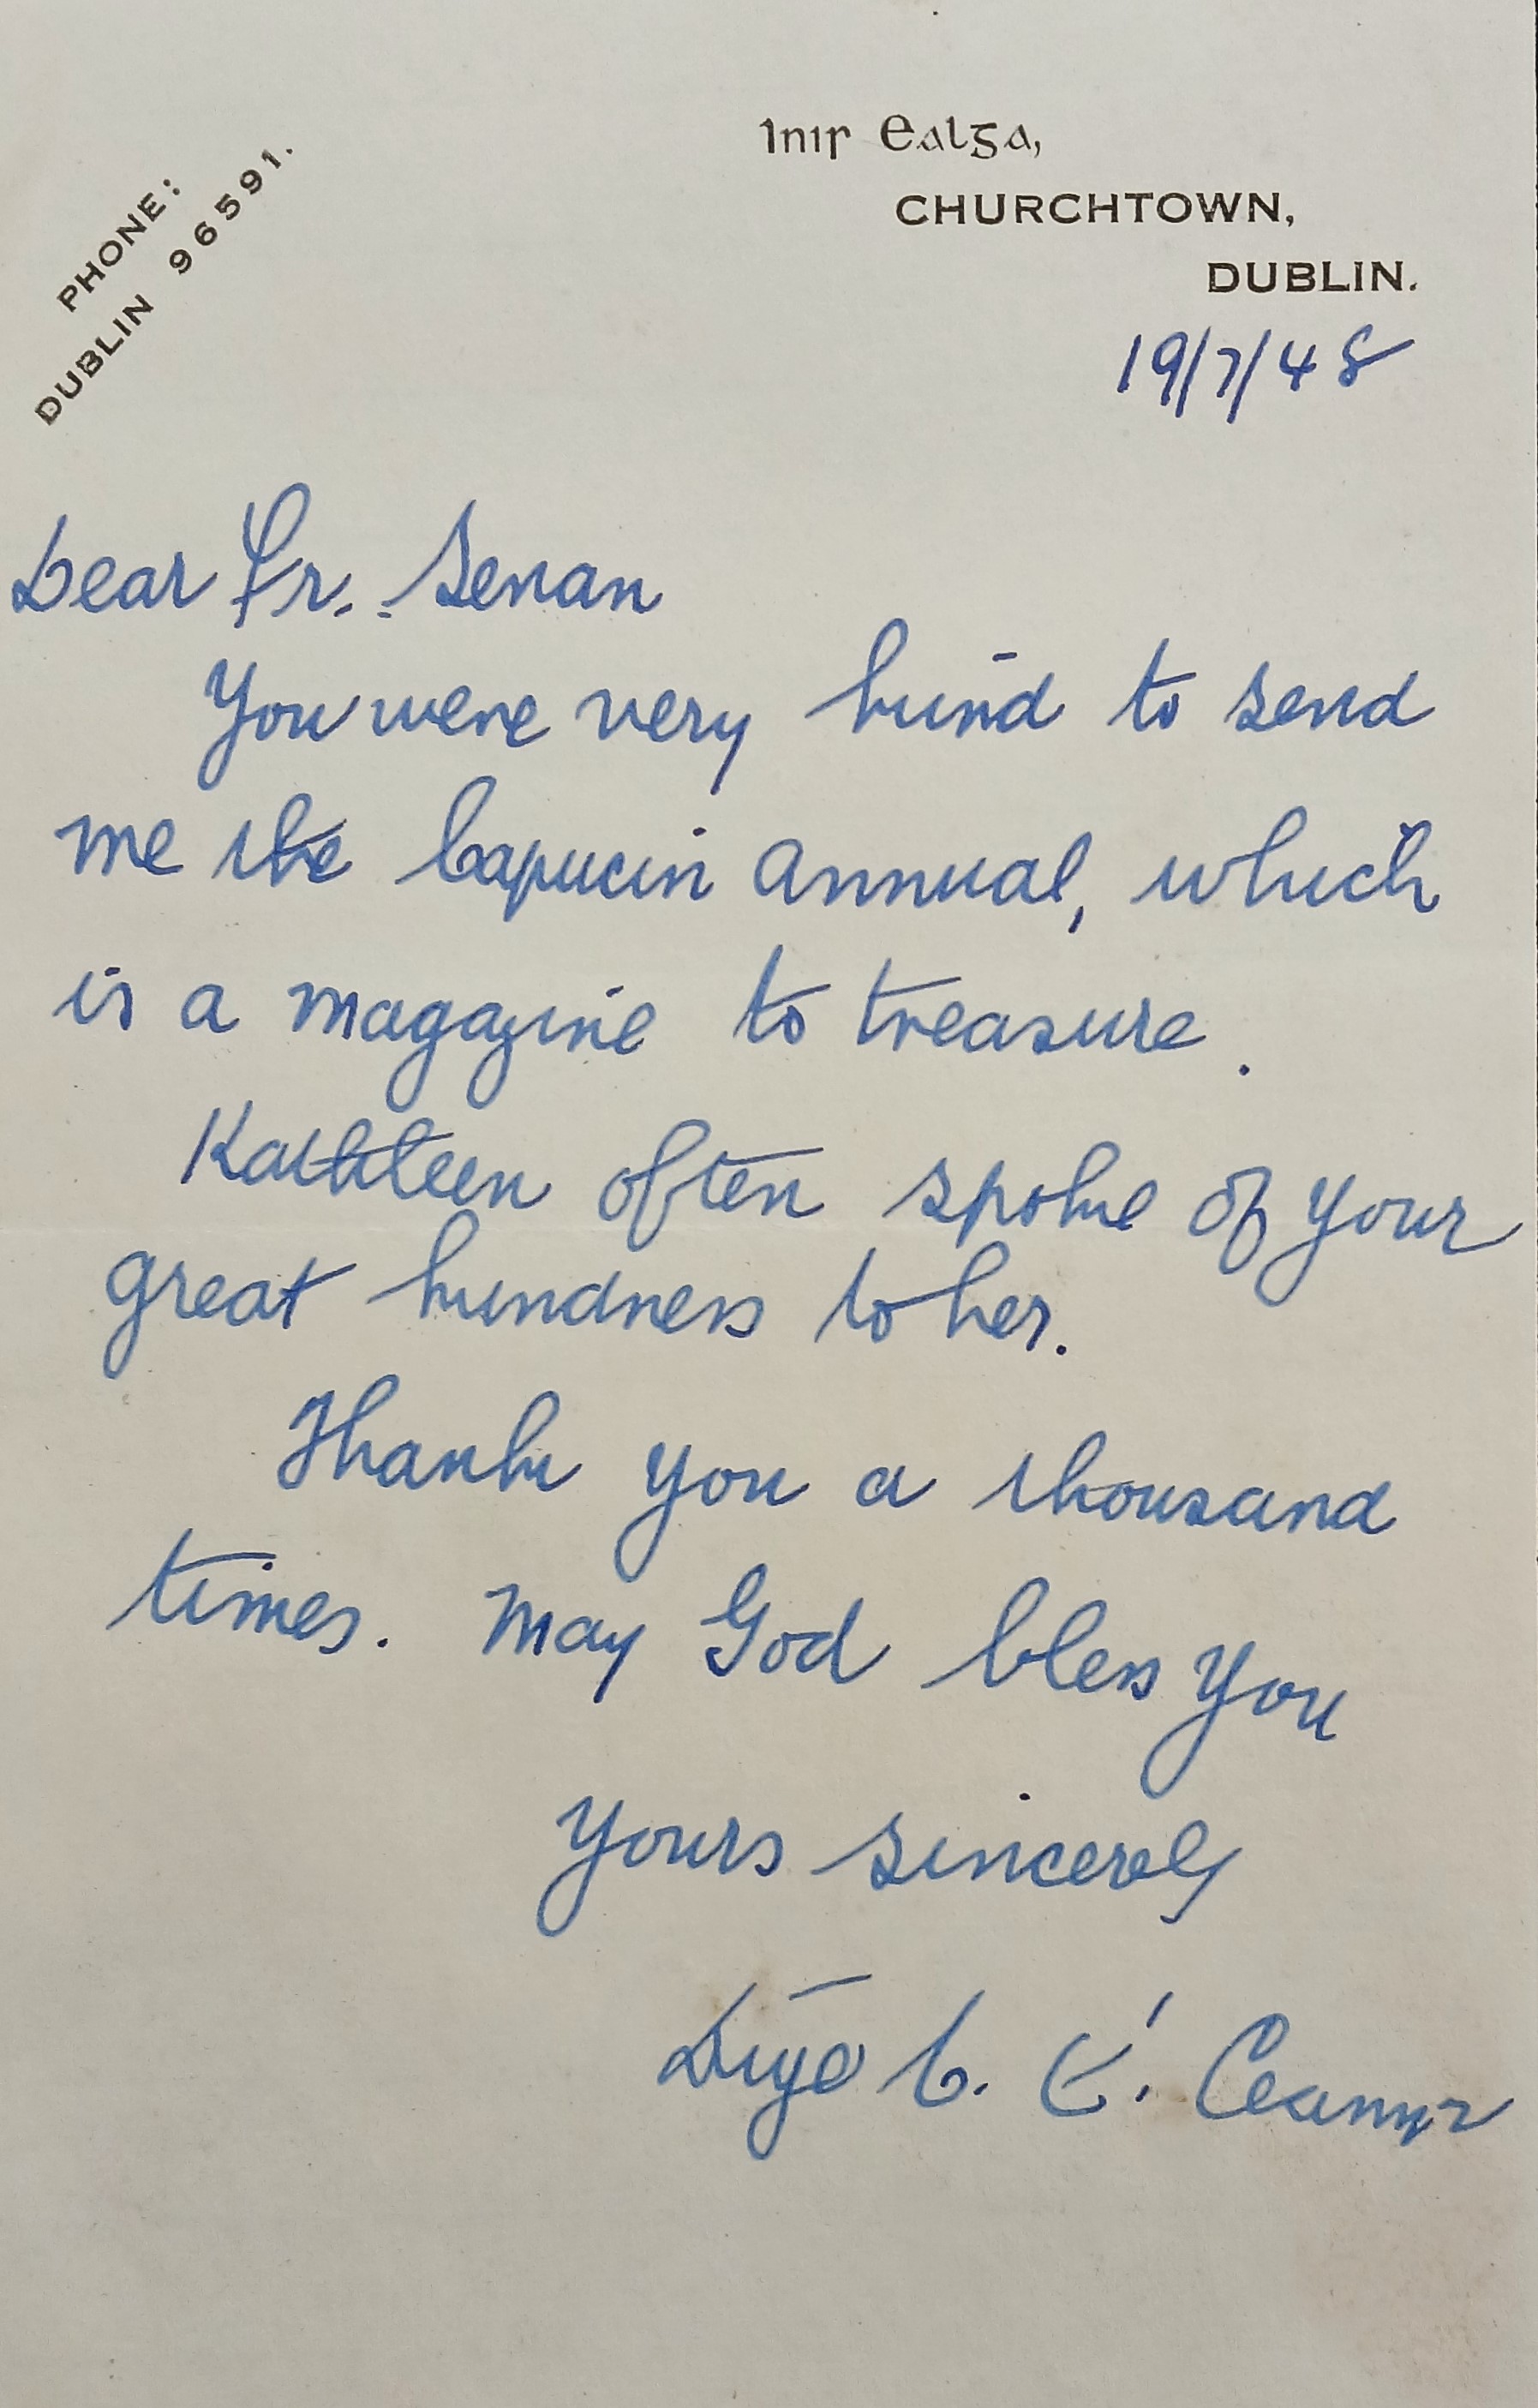 PHONE:
DUBLIN 96591.
Inis Ealga,
CHURCHTOWN,
DUBLIN.
19/7/48
Dear Fr. Senan
You were very kind to send
me the Capucin Annual, which
is a magazine to treasure.
Kathleen often spoke of your
great kindness to her.
Thank you a thousand
times. May God bless you
Yours sincerely
Áine B. É. Ceannt